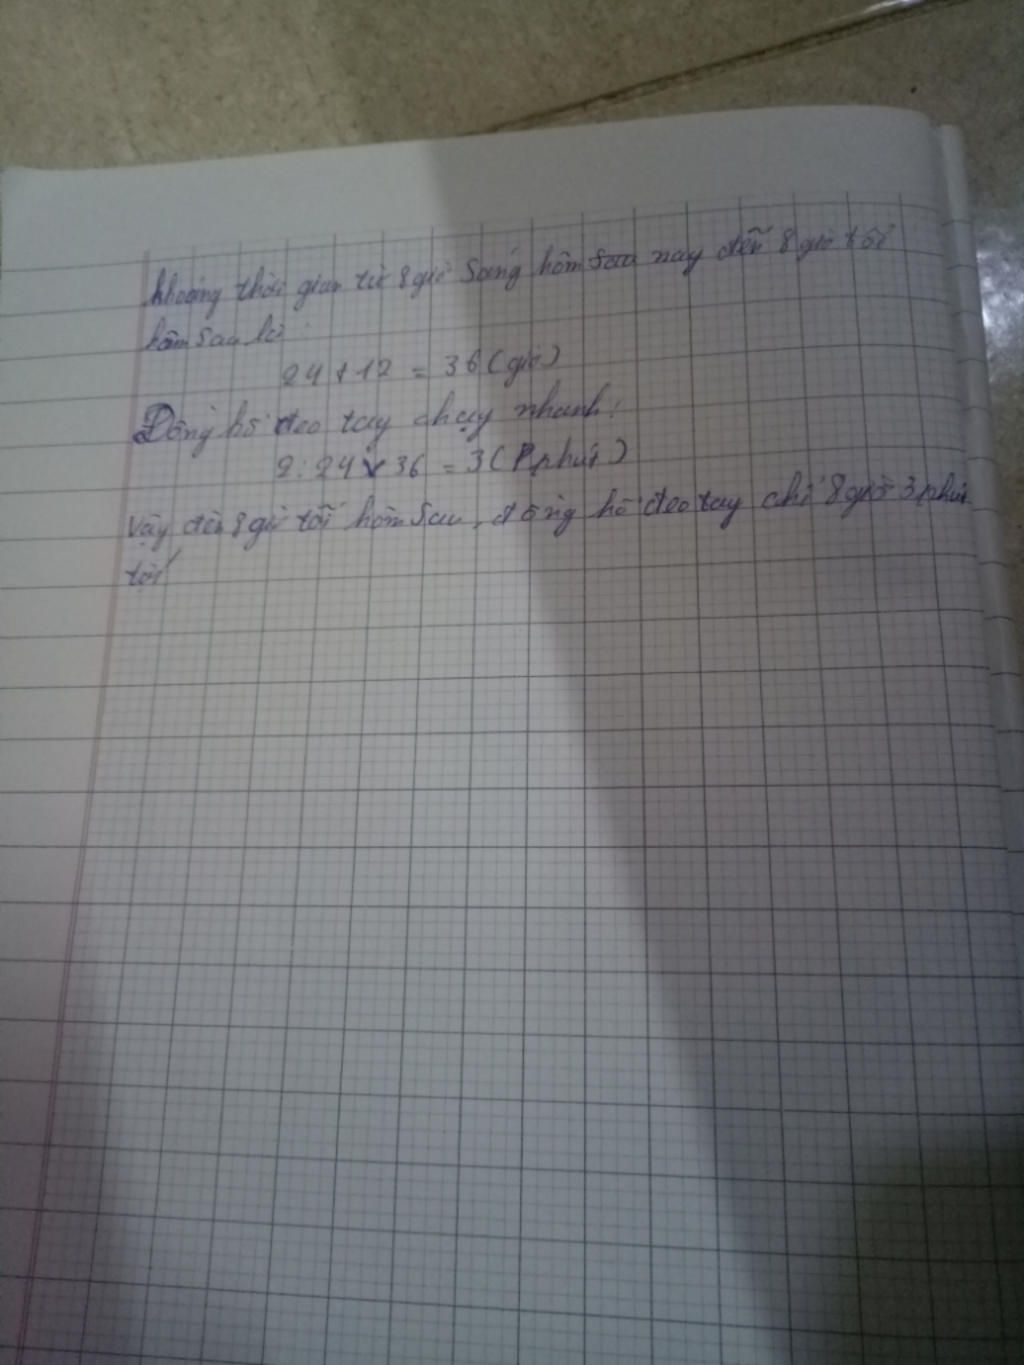 khoảng thời gian từ 8 giờ Sáng hôm Sau nay đến 8 giờ tối
hôm Sau là:
24 + 12 = 36 (giờ)
Đồng hồ đeo tay chạy nhanh:
2: 24 x 36 = 3 (phút)
Vậy đến 8 giờ tối hôm Sau, đồng hồ đeo tay chỉ 8 giờ 3 phút
tối